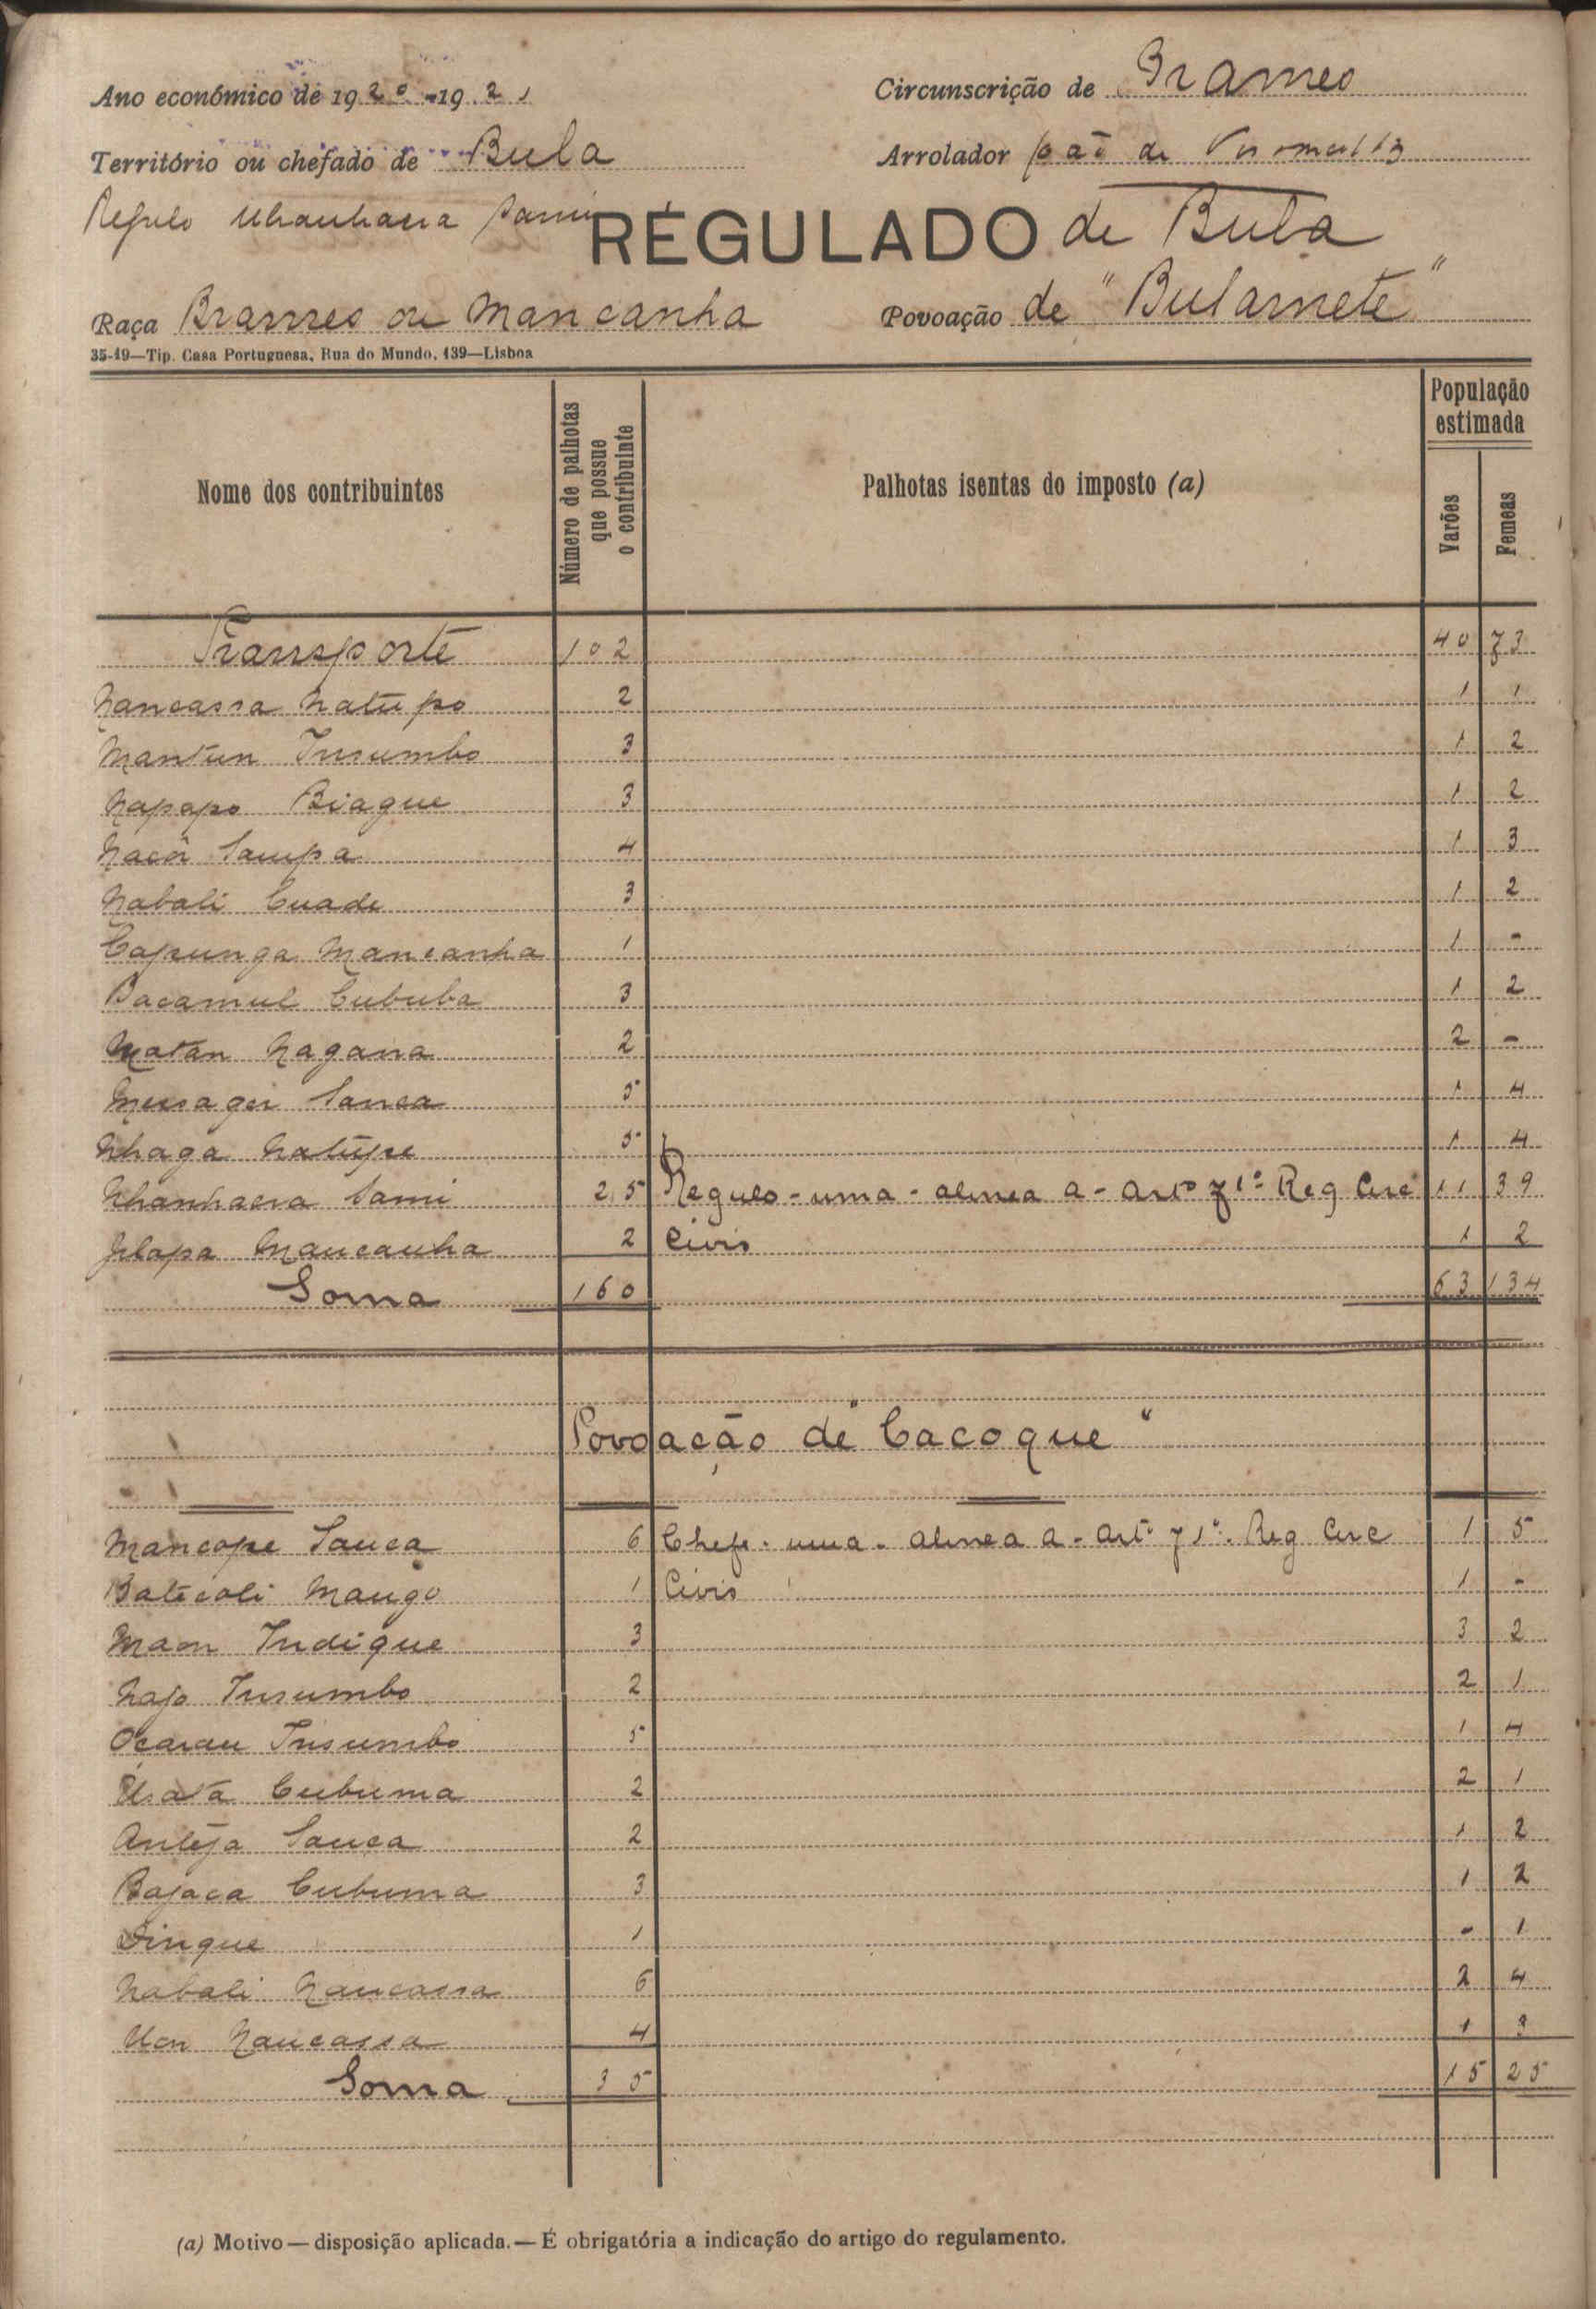 Ano económico de 1920-1921
Circunscrição de Brames
Território ou chefado de Bula
Arrolador João de
Regulo Nhanhacra Sami
REGULADO de Bula
Raça Brames ou Mancanha
Povoação de "Bularnete"
35-19—Tip. Casa Portuguesa, Rua do Mundo, 139—Lisboa
Nome dos contribuintes
Número de palhotas que possue o contribuinte
Palhotas isentas do imposto (a)
População estimada
Varões
Femeas
Transporte 102 40 73
Nancassa Natupo 2 1 1
Mantun Insumbo 3 1 2
Napapo Biague 3 1 2
Nacôi Sampa 4 1 3
Nabali Cuade 3 1 2
Capunga Mancanha 1 1 -
Bacamul Cububa 3 1 2
Matan Nagana 2 2 -
Sanca 5 1 4
Nhaga Natúpe 5 1 4
Nhanhacra Sami 25 Regulo - uma - alinea a - artº 71º Reg Circ 11 39
Mancanha 2 Civis 1 2
Soma 160 63 134
Povoação de "Cacoque"
Mancope Sanca 6 Chefe - uma - alinea a - artº 71º - Reg Circ 1 5
Batecoli Mango 1 Civis 1 -
Maon Indique 3 3 2
Najo Insumbo 2 2 1
Ocarau Insumbo 5 1 4
Cubuma 2 2 1
Anteja Sanca 2 1 2
Bajaca Cubuma 3 1 2
Dingue 1 - 1
Nabali Nancassa 6 2 4
Uon Nancassa 4 1 3
Soma 35 15 25
(a) Motivo — disposição aplicada. — É obrigatória a indicação do artigo do regulamento.